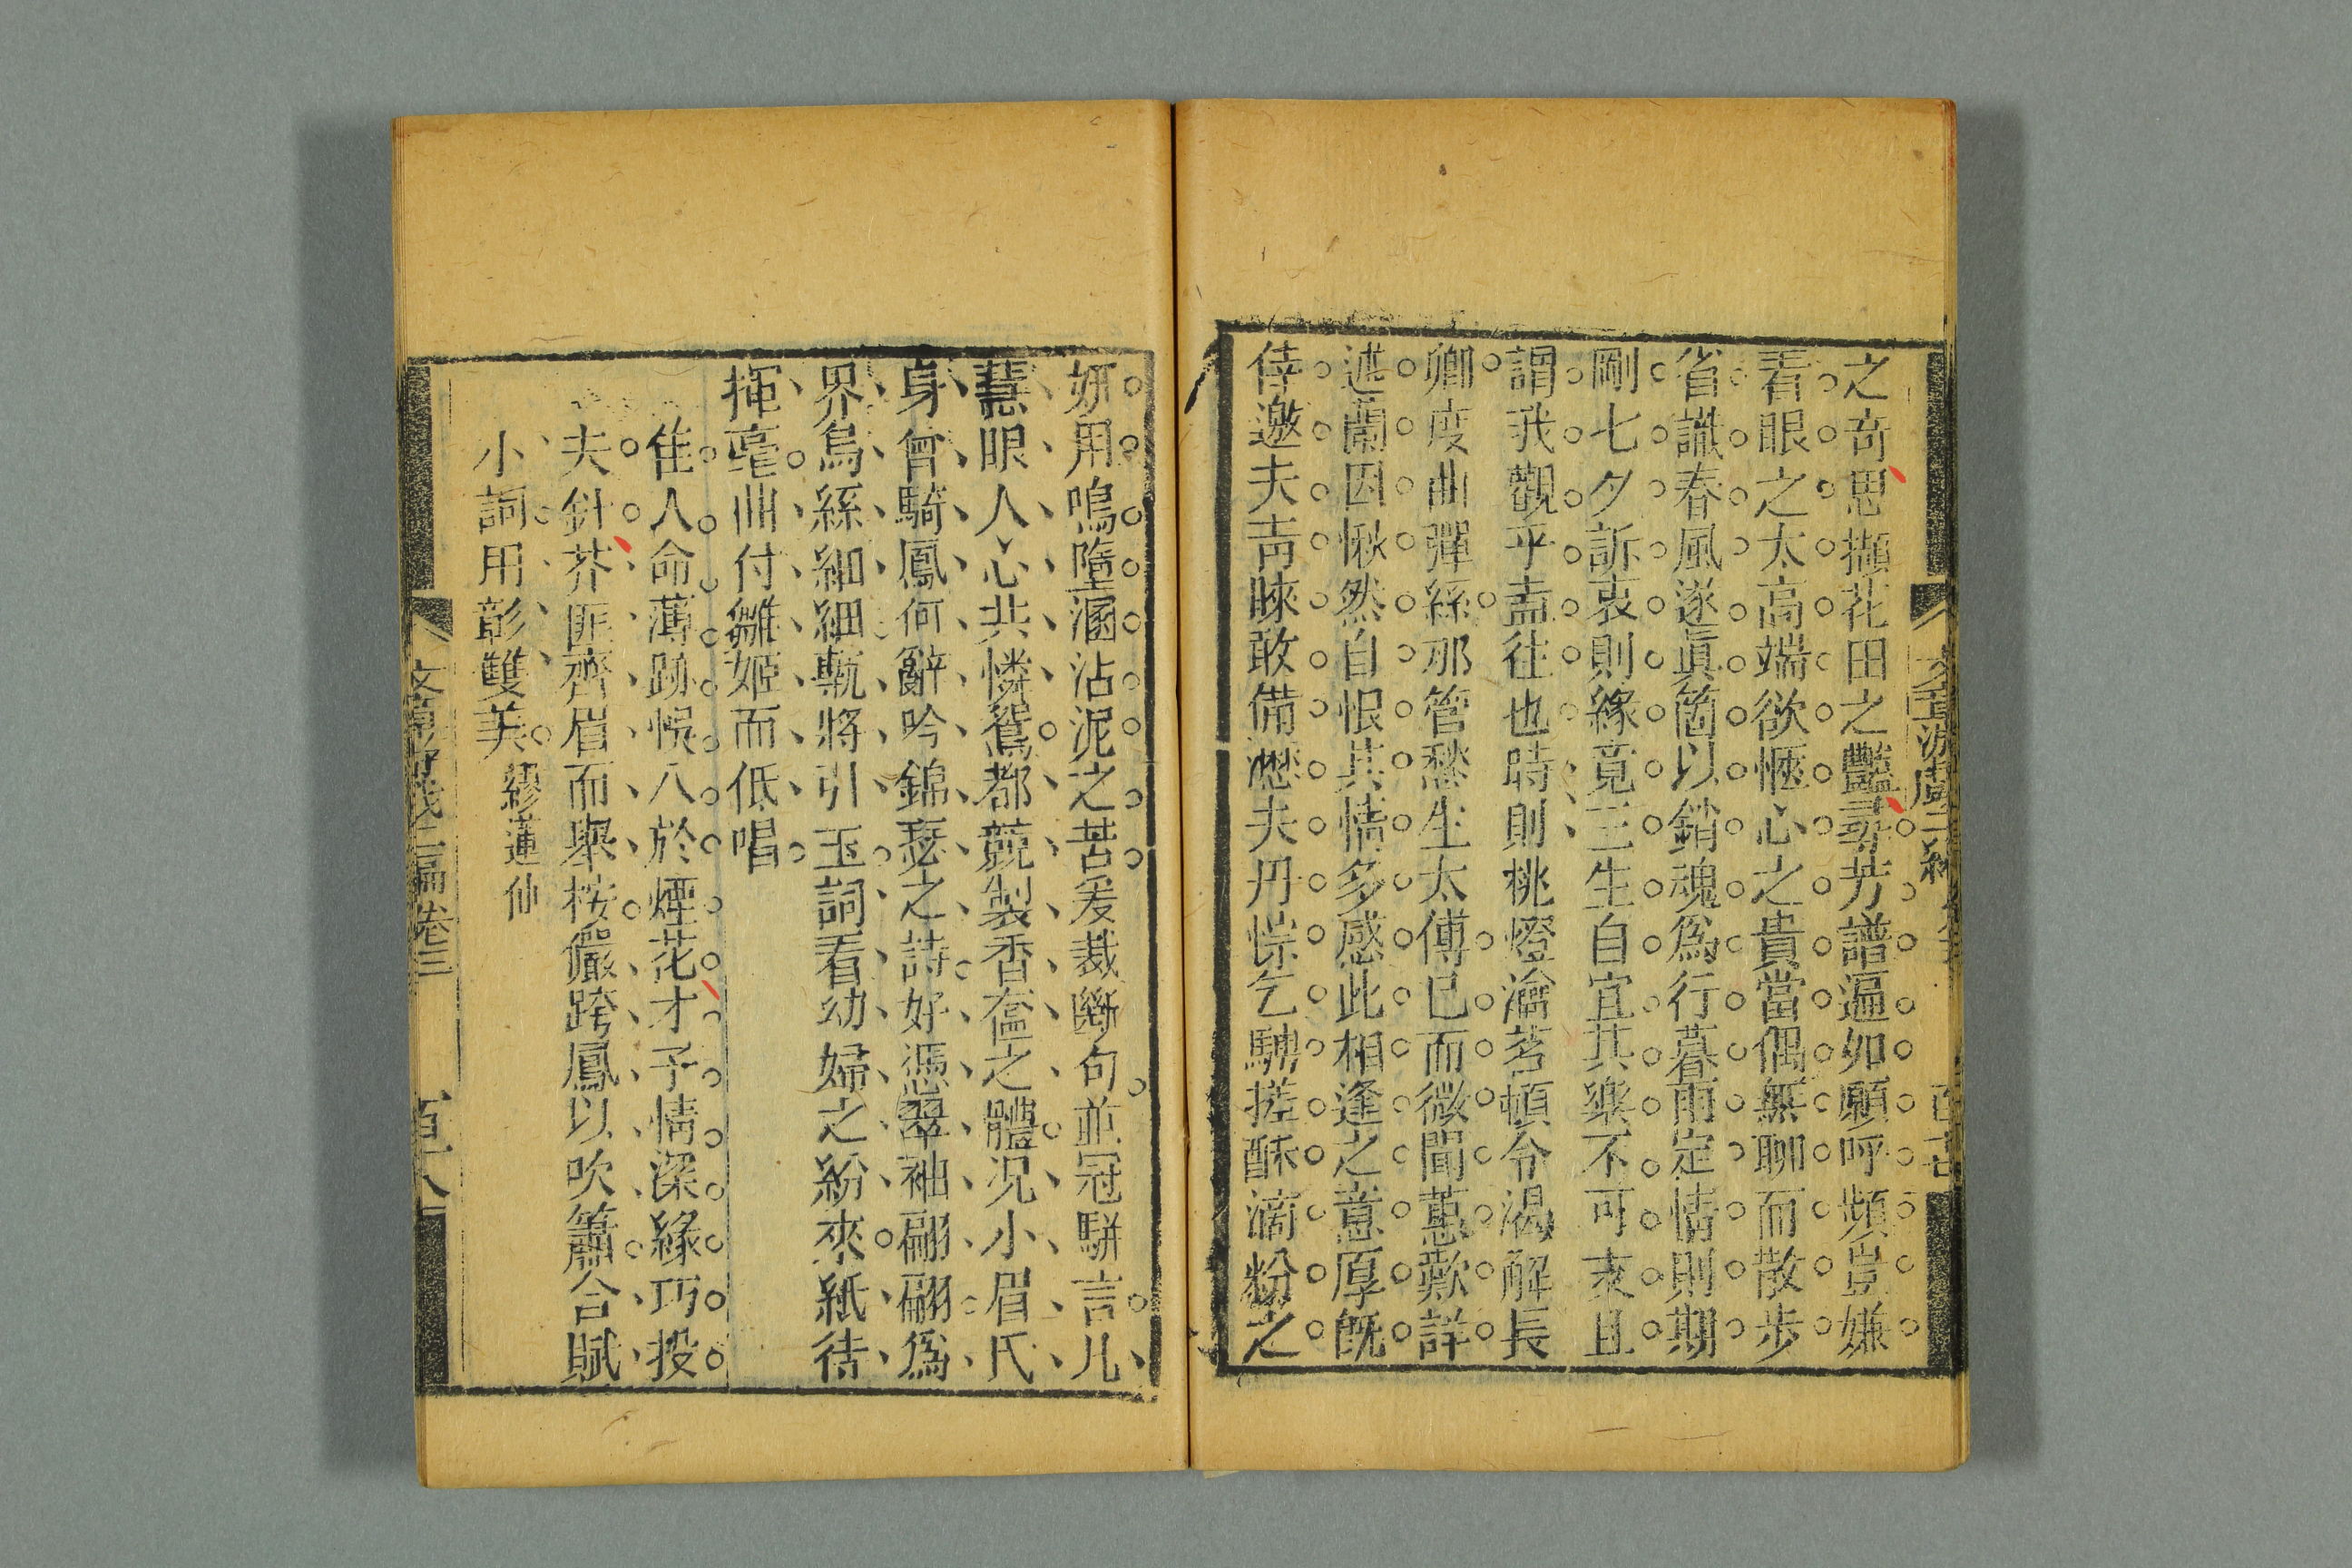 之奇思擷花田之豔尋芳譜遍如願呼頻豈嫌
看眼之太高端欲愜心之貴當偶無聊而散步
省識春風遂眞箇以銷魂爲行暮雨定情則期
剛七夕訴衷則緣竟三生自宜其樂不可支且
謂我觀乎盍往也時則桃燈瀹茗頓令渴解長
卿度曲彈絲那管愁生太傅已而微聞蕙歎詳
述蘭因愀然自恨其情多感此相逢之意厚旣
侍邀夫靑睞敢備瀝夫丹悰乞騁搓酥滴粉之
妍用鳴墮溷沾泥之苦爰裁斷句並冠駢言儿
慧眼人心共憐鴛都競製香奩之體况小眉氏
身曾騎鳳何辭吟錦瑟之詩好憑翠袖翩翩爲
界烏絲細細甎將引玉詞看幼婦之紛來紙待
揮毫曲付雛姬而低唱
佳人命薄跡悞八於煙花才子情深緣巧投
夫針芥匪齊眉而舉桉儼跨鳳以吹簫合賦
小詞用彰雙美 繆蓮仙
文章游戲二編卷三
百八